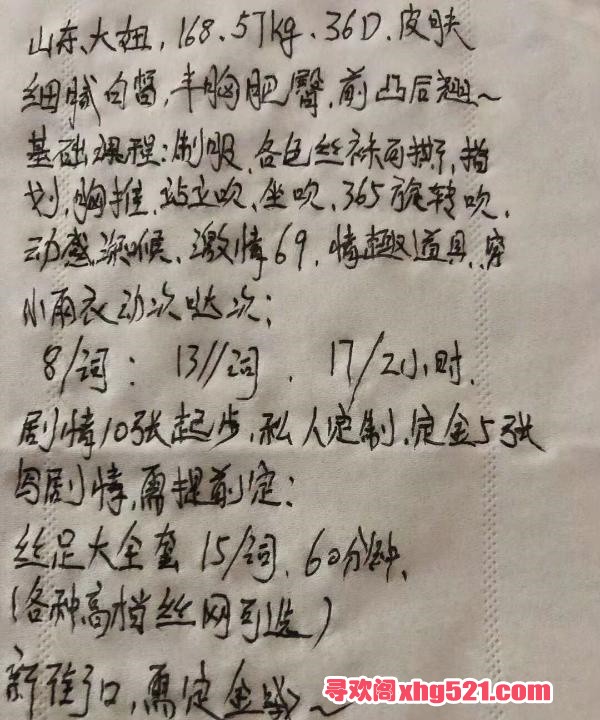 山东、大妞，168.57kg、36D、皮肤
细腻白皙，丰胸肥臀，前凸后翘~
基础课程：制服、各色丝袜可撕、指
划，胸推、站立吹、坐吹、365旋转吹、
动感深喉、激情69，情趣道具，穿
小雨衣动次哒次；
8/词：13//词、17/2小时、
剧情10张起步、私人定制、定金5张
写剧情，需提前定：
丝足大全套 15/词，60分钟、
（各种高档丝网可选）
新街口，需定金~
寻欢阁xhg521.com